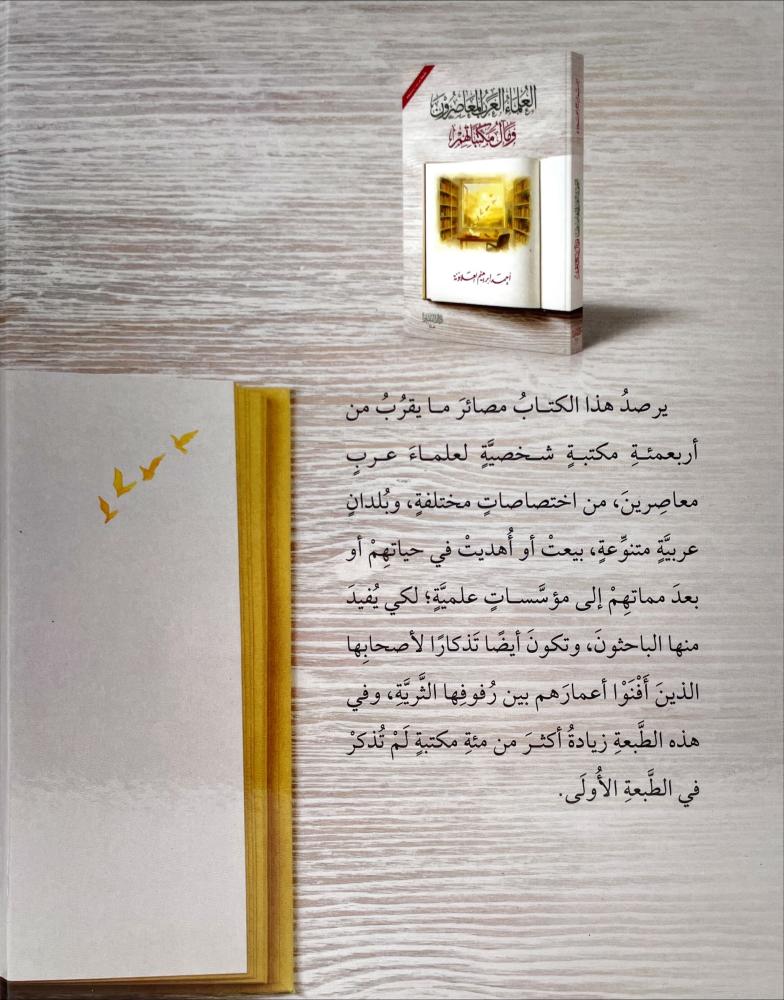 العُلماءُ العَربُ المُعاصِرُونَ
وَمَآلُ مَكتَباتِهِمْ
أحمد إبراهيم العلاونة
يرصدُ هذا الكتـابُ مصائرَ مـا يقرُبُ من
أربعمئـةِ مكتبـةٍ شـخصيَّةٍ لعلمـاءَ عـربٍ
معاصِرينَ، من اختصاصاتٍ مختلفةٍ، وبُلدانٍ
عربيَّةٍ متنوِّعةٍ، بيعتْ أو أُهديتْ في حياتهِمْ أو
بعدَ مماتهِمْ إلى مؤسَّسـاتٍ علميَّةٍ؛ لكي يُفيدَ
منها الباحثونَ، وتكونَ أيضًا تَذكارًا لأصحابِها
الذينَ أَفْنَوْا أعمارَهم بين رُفوفِها الثَّريَّةِ، وفي
هذه الطَّبعةِ زيادةُ أكثـرَ من مئةِ مكتبةٍ لَمْ تُذكرْ
في الطَّبعةِ الأُولَى.